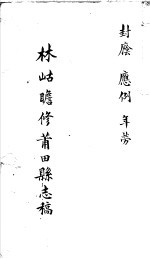 封廕 應例 年勞
林岵瞻修莆田縣志稿